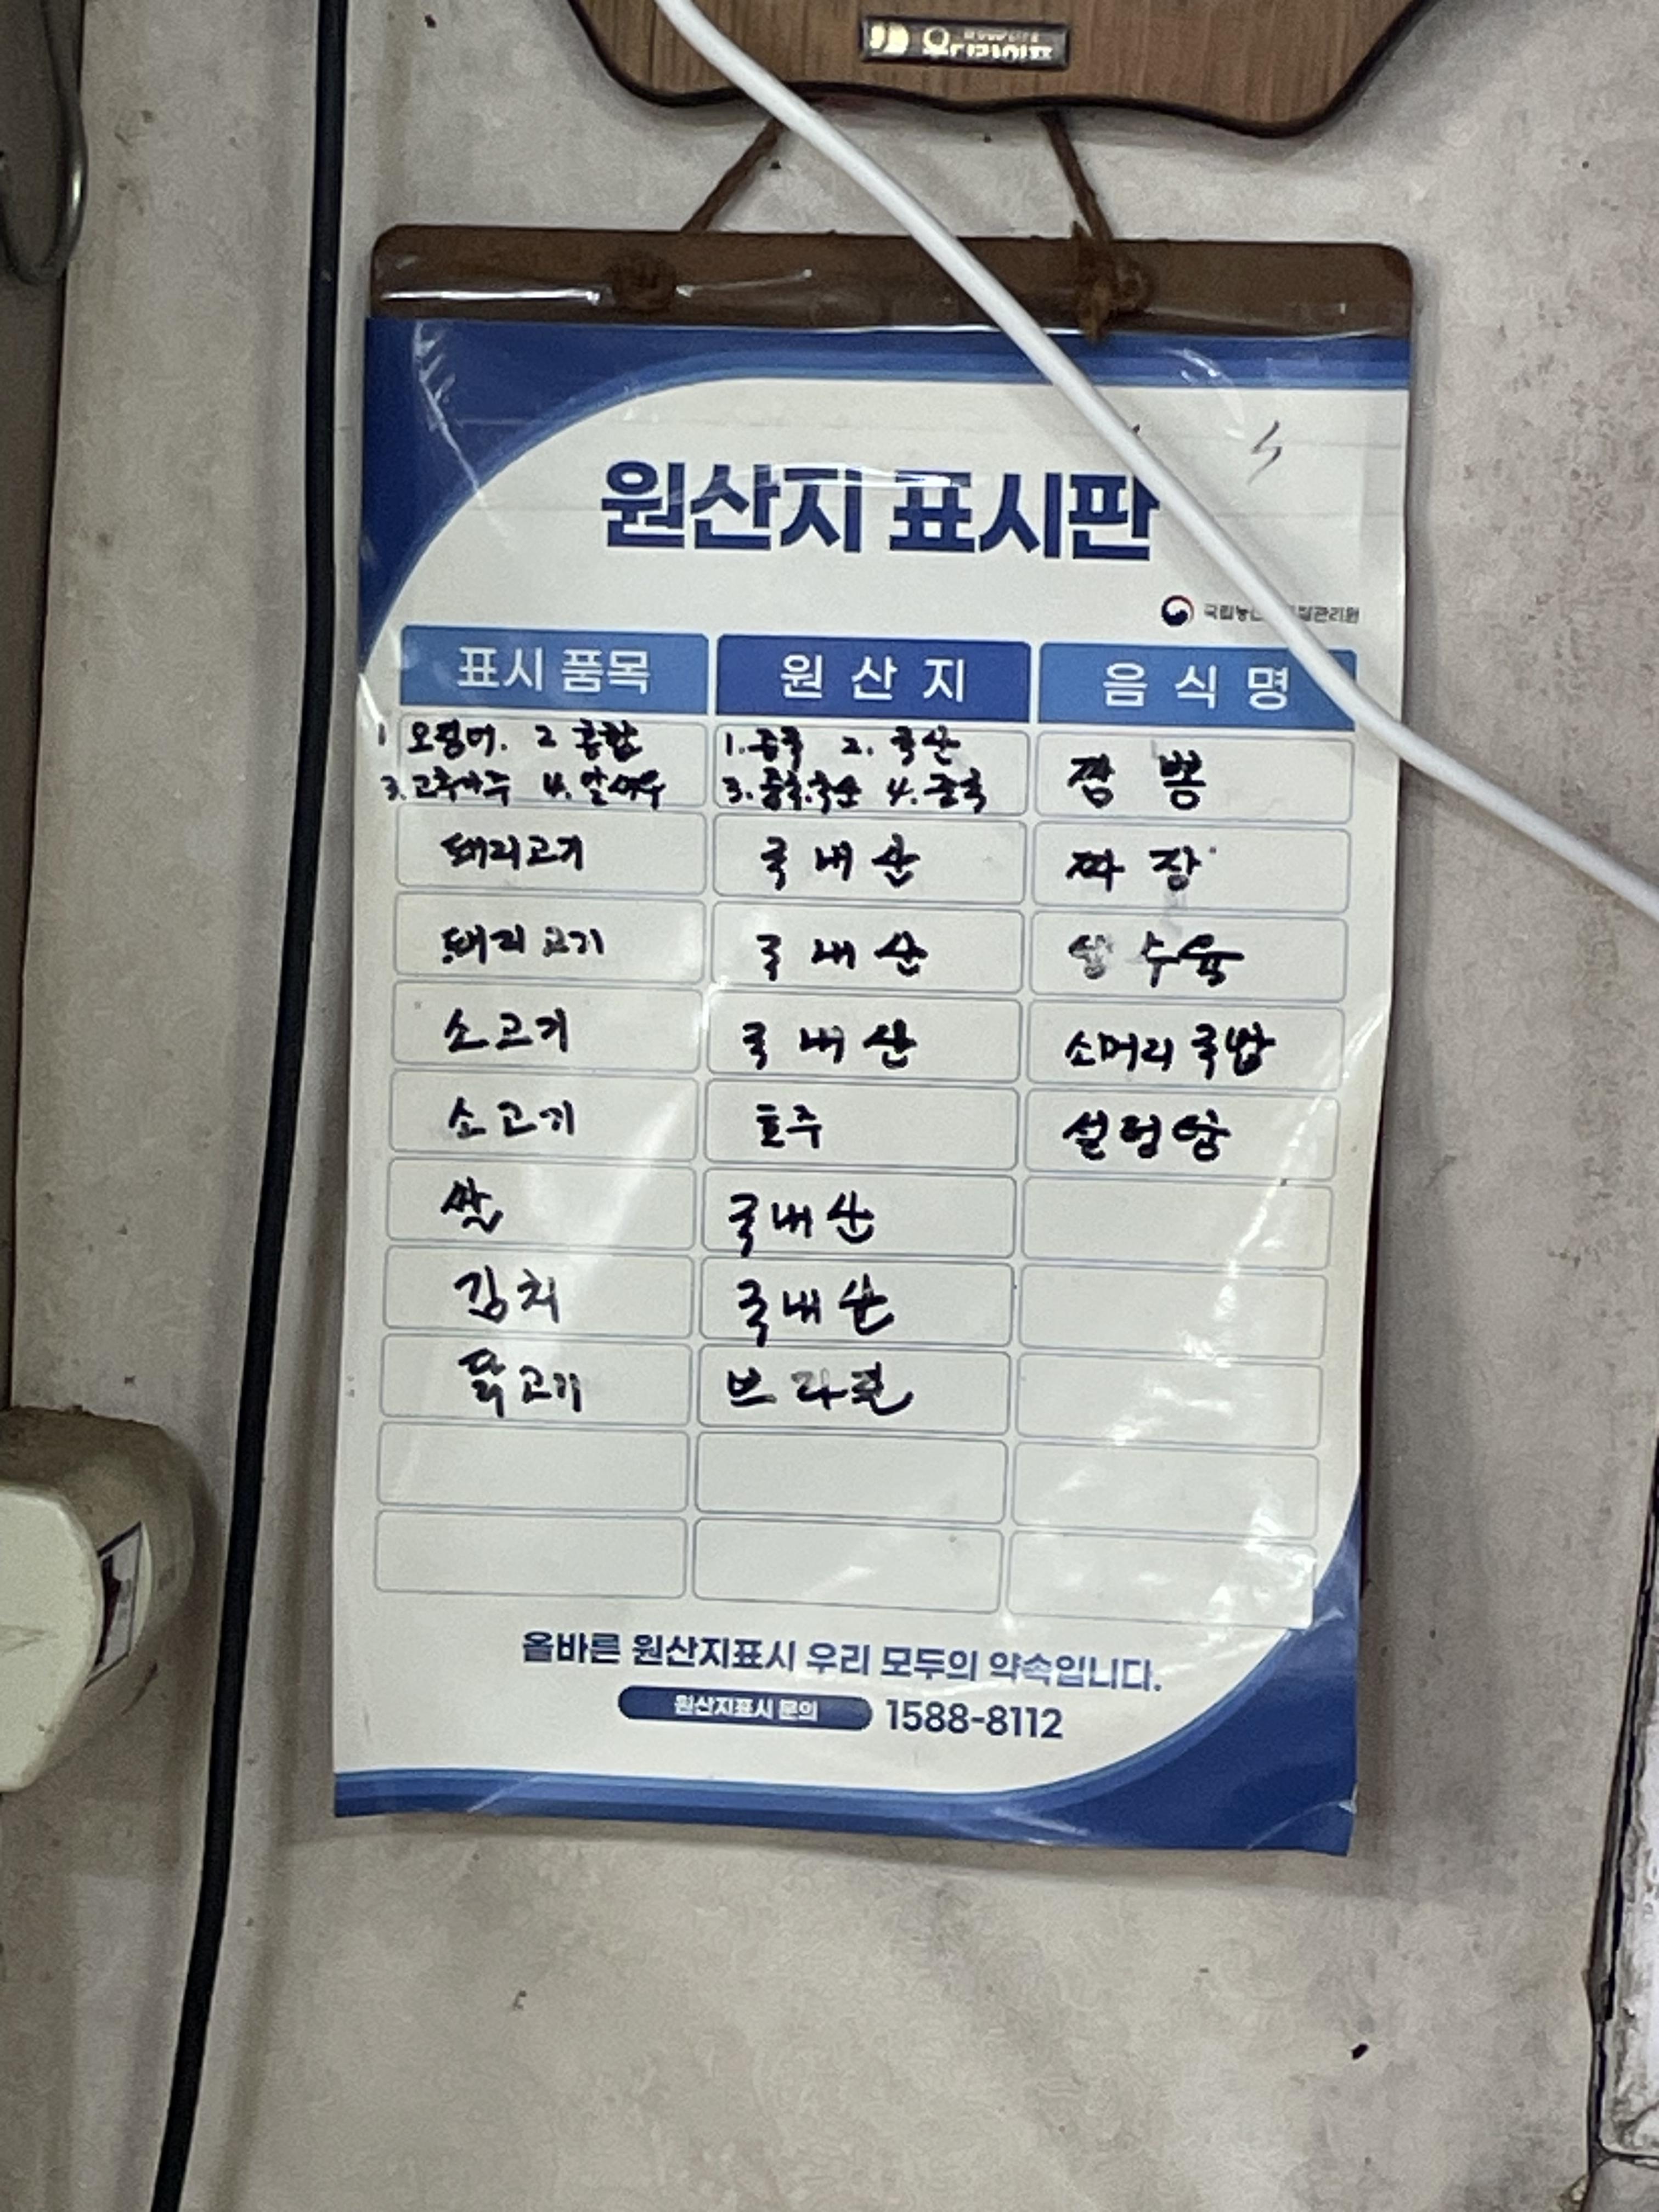 원산지 표시판
표시 품목 원산지 음식명
1 오징어. 2 홍합 1. 중국 2. 국산 짬뽕
3. 고추가루 4. 알새우 3. 중국.국산 4. 중국
돼지고기 국내산 짜장
돼지고기 국내산 탕수육
소고기 국내산 소머리국밥
소고기 호주 설렁탕
쌀 국내산
김치 국내산
닭고기 브라질
올바른 원산지표시 우리 모두의 약속입니다.
원산지표시 문의 1588-8112